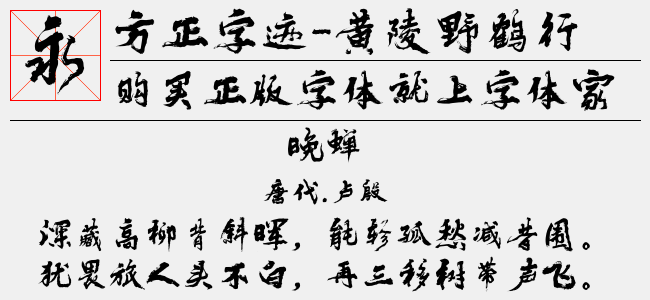 永
方正字迹-黄陵野鹤行
购买正版字体就上字体家
晚蝉
唐代.卢殷
深藏高柳背斜晖，能轸孤愁减昔围。
犹畏旅人头不白，再三移树带声飞。